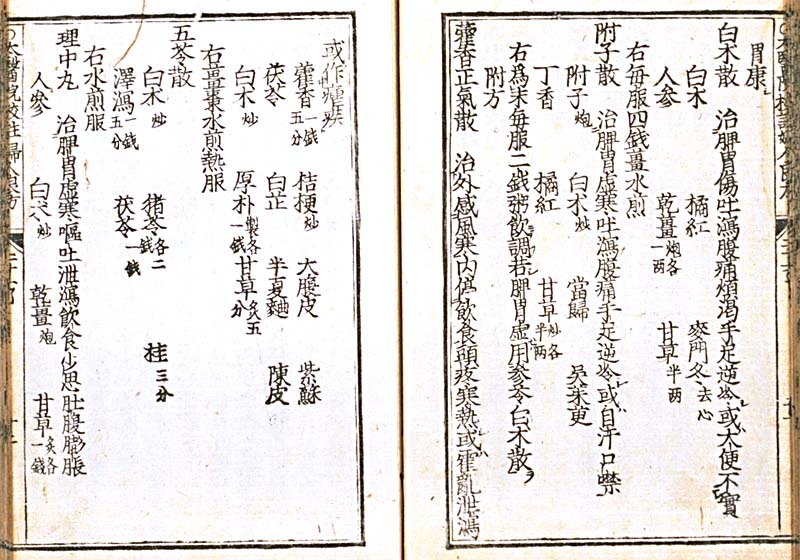 胃康
白朮散 治脾胃傷吐瀉腹痛煩渇手足逆冷或大便不實
白朮 橘紅 麥門冬去心
人参 乾薑炮各一兩 甘草半兩
右毎服四銭薑水煎
附子散 治脾胃虚寒吐瀉腹痛手足逆冷或自汗口噤
附子炮 白朮炒 當歸 吳茱萸
丁香 橘紅 甘草炒各半兩
右為末毎服二銭粥飲調若脾胃虚用參苓白朮散
附方
藿香正氣散 治外感風寒内停飲食頭疼寒熱或霍亂泄瀉
或作瘧疾
藿香一銭五分 桔梗炒 大腹皮 紫蘇
茯苓 白芷 半夏麯 陳皮
白朮炒 厚朴製各一銭 甘草炙五分
右薑棗水煎熱服
五苓散
白朮炒 猪苓各二銭 桂三分
澤瀉一銭五分 茯苓一銭
右水煎服
理中丸 治脾胃虚寒嘔吐泄瀉飲食少思肚腹膨脹
人參 白朮炒 乾薑炮 甘草炙各一銭